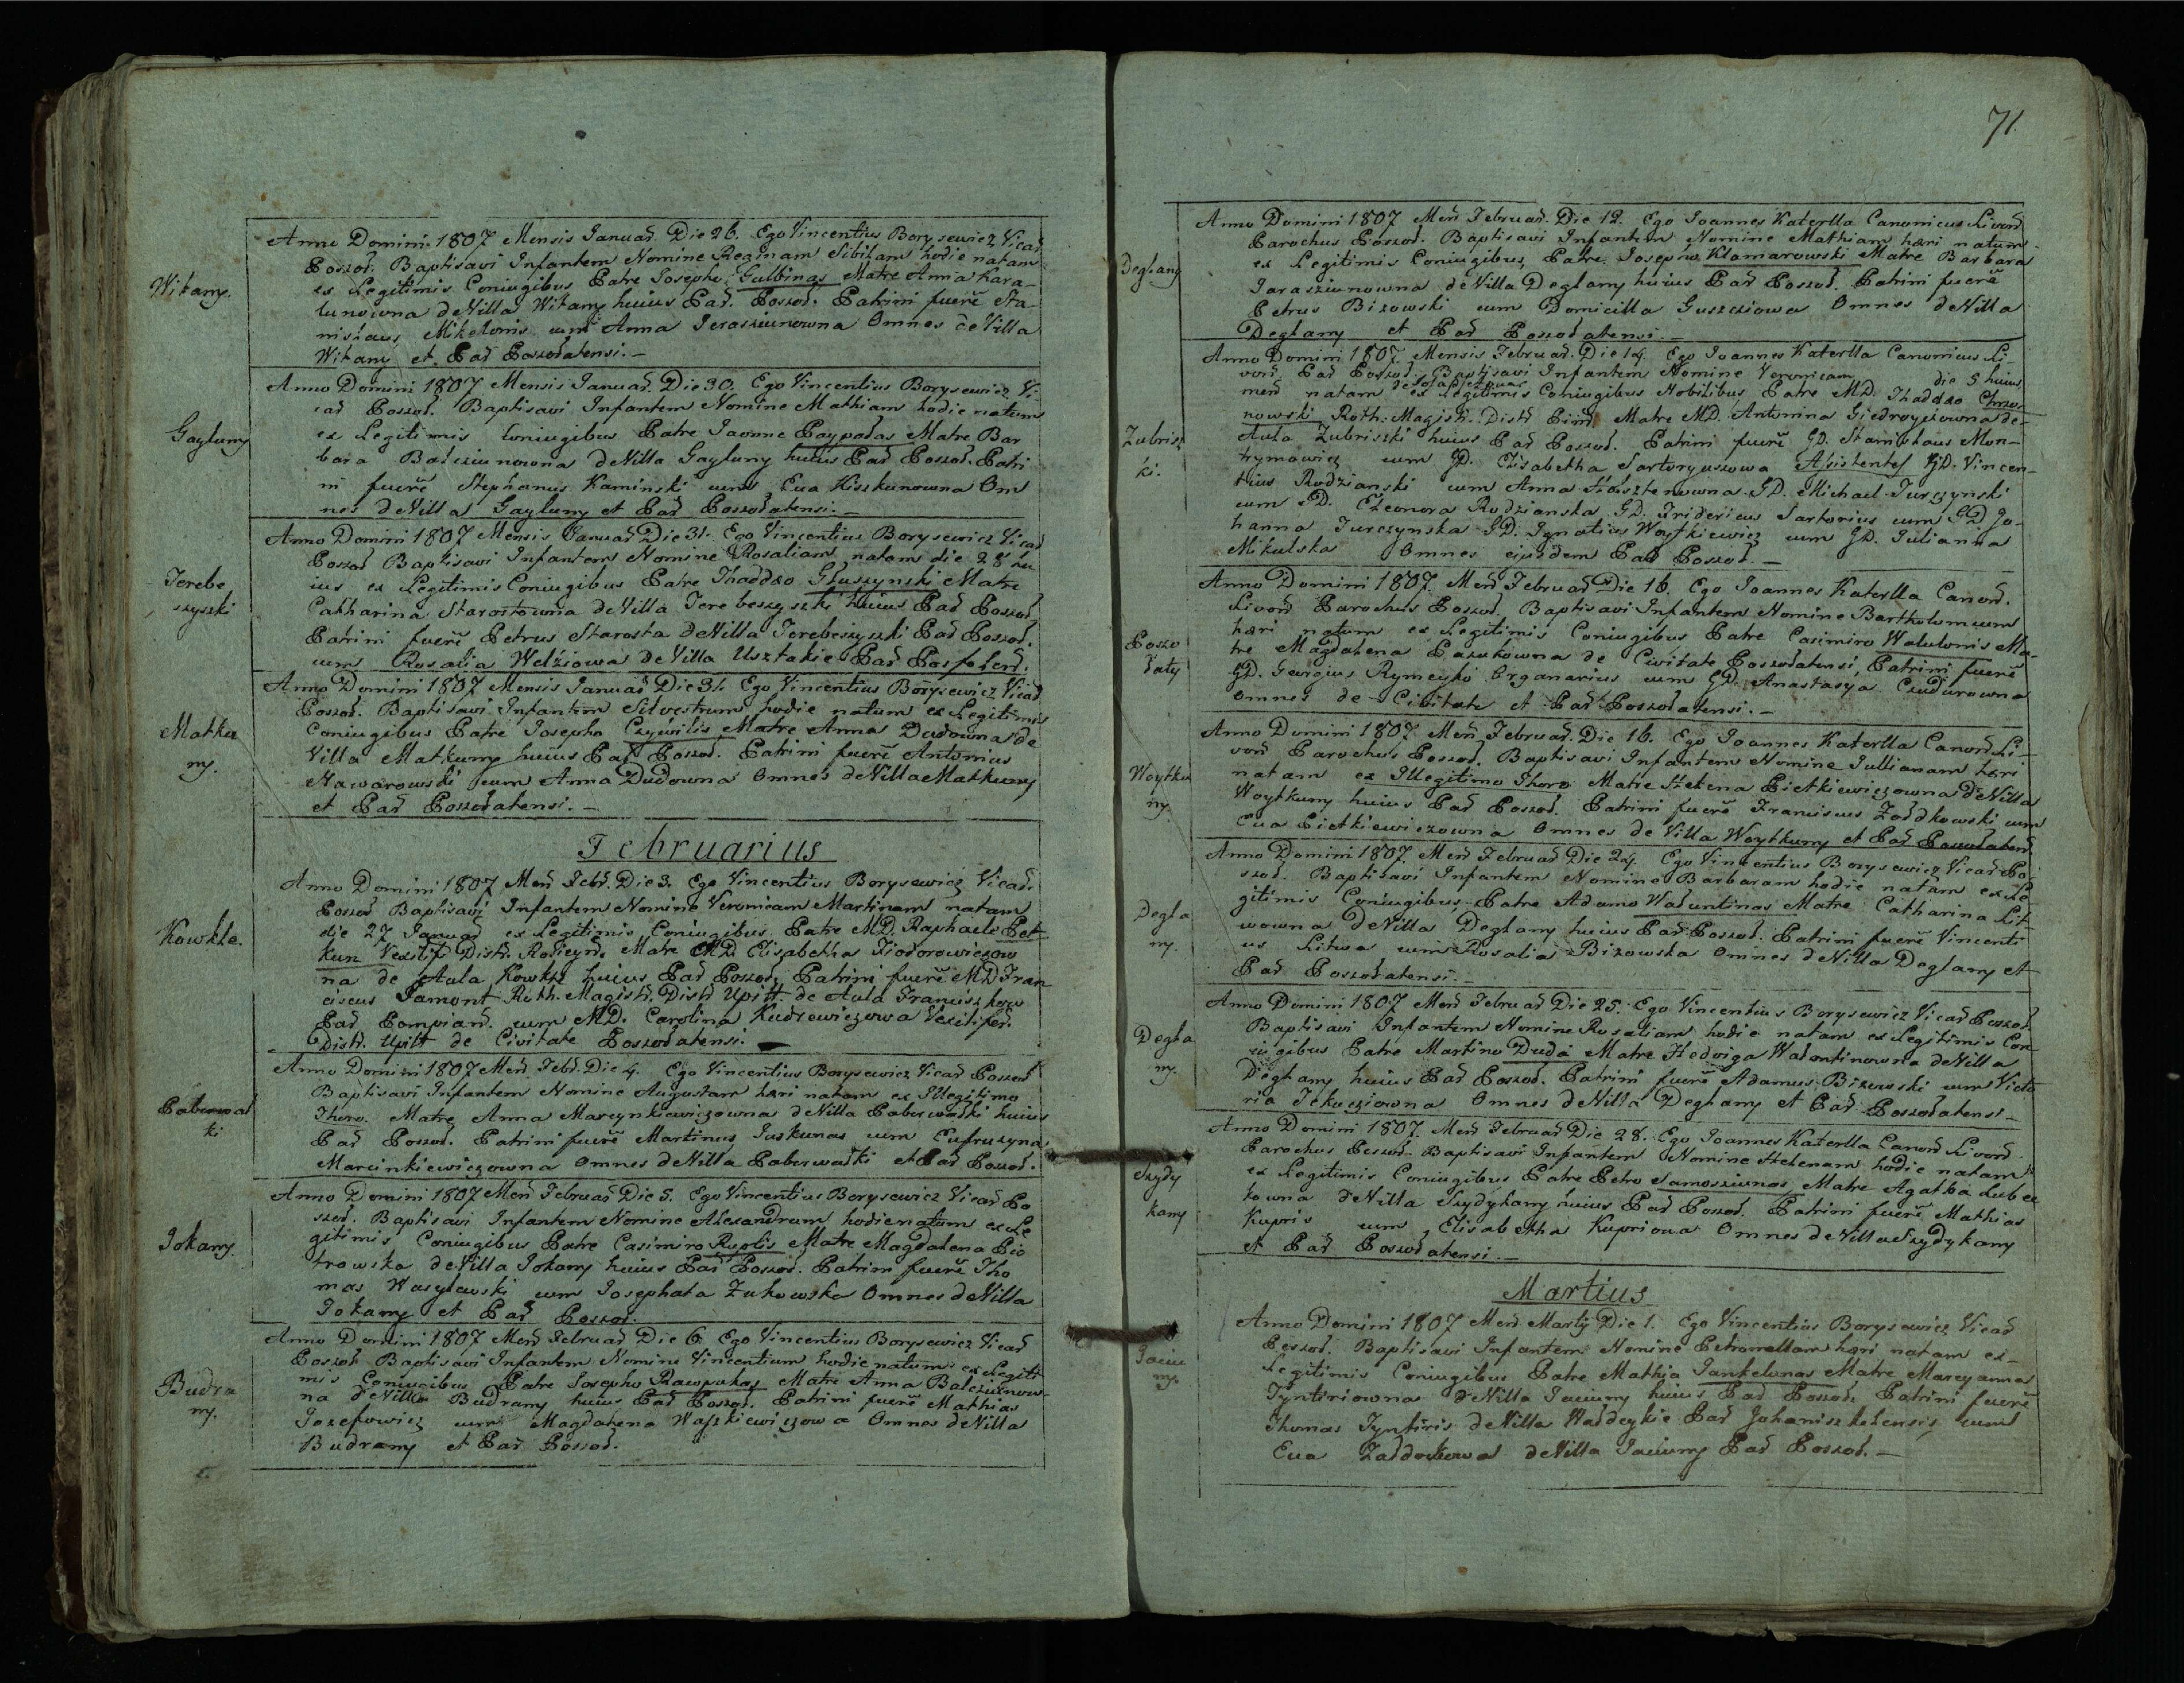 Witany.
Anno Domini 1807 Mensis Januar. Die 26. Ego Vincentius Borysewicz Vicar
Poszoł. Baptisavi Infantem Nomine Reginam Sibillam hodie natam
ex Legitimis Coniugibus Patre Josepho Gulbinas Matre Anna Kara-
lunowna de Villa Witany huius Par. Poszoł. Patrini fuere Sta-
nisłaus Mikolonis cum Anna Jeraszunowna Omnes de Villa
Witany et Par Poszołatensi. -
Gayluny
Anno Domini 1807 Mensis Januar. Die 30. Ego Vincentius Borysewicz Vi-
car Poszoł. Baptisavi Infantem Nomine Mathiam hodie natum
ex Legitimis Coniugibus Patre Joanne Paypałas Matre Bar
bara Balcziunowna de Villa Gayluny huius Par Poszoł. Patri
ni fuere Stephanus Kaminski cum Eva Kiszkunowna Om
nes de Villa Gayluny et Par Poszołatensi. -
Jerebe
szyszki
Anno Domini 1807 Mensis Januar Die 31. Ego Vincentius Borysewicz Vicar
Poszoł Baptisavi Infantem Nomine Rosaliam natam die 28 hu
ius ex Legitimis Coniugibus Patre Thaddæo Głuszynski Matre
Catharina Starostowna de Villa Jerebeszyszki huius Par Poszoł
Patrini fuere Petrus Starosta de Villa Jerebeszyszki Par Poszoł.
cum Rosalia Welziowa de Villa Usztakie Par
Matku
ny.
Anno Domini 1807 Mensis Januar Die 31. Ego Vincentius Borysewicz Vicar
Poszoł. Baptisavi Infantem Silvestrum hodie natum ex Legitimis
Coniugibus Patre Josepho Czywilis Matre Anna Dudowna de
Villa Matkuny huius Par Poszoł. Patrini fuere Antonius
Nawarowski cum Anna Dudowna Omnes de Villa Matkuny
et Par Poszołatensi. -
Februarius
Kowkle.
Anno Domini 1807 Men Febr. Die 3. Ego Vincentius Borysewicz Vicar.
Poszoł Baptisavi Infantem Nomine Veronicam Martinam natam
die 27 Januar ex Legitimis Coniugibus Patre MD. Raphaele Pet-
kun Vexilif Distr. Matre MD. Elisabetha Fiodorowiczow
na de Aula Kowkle huius Par Poszoł. Patrini fuere MD Fran
ciscus Jamont Roth. Magistr. Distr Upitt. de Aula Franciszkowo
Par Pompian. cum MD. Carolina Kudrewiczowa Vexilifer.
Distr. Upitt de Civitate Poszołatensi.
Paberwał
ki
Anno Domini 1807 Men Febr. Die 4. Ego Vincentius Borysewicz Vicar Poszoł
Baptisavi Infantem Nomine Augustam heri natam ex Illegitimo
Thoro. Matre Anna Marcynkiewiczowna de Villa Paberwałki huius
Par Poszoł. Patrini fuere Martinus Juskunas cum Eufruzyna
Marcinkiewiczowna Omnes de Villa Paberwałki et Par Poszoł.
Jokany.
Anno Domini 1807 Men Februar Die 5. Ego Vincentius Borysewicz Vicar Po
szoł. Baptisavi Infantem Nomine Alexandrum hodie natum ex Le
gitimis Coniugibus Patre Casimiro Ruplis Matre Magdalena Pio
trowska de Villa Jokany huius Par Poszoł. Patrini fuere Tho
mas Wasylewski cum Josephata Zukowska Omnes de Villa
Jokany et Par Poszoł.
Budra
ny.
Anno Domini 1807 Men Februar Die 6. Ego Vincentius Borysewicz Vicar
Poszoł Baptisavi Infantem Nomine Vincentium hodie natum ex Legiti
mis Coniugibus Patre Josepho Rawpukas Matre Anna Balcziunow-
na de Villa Budrany huius Par Poszoł. Patrini fuere Mathias
Jozefowicz cum Magdalena Waszkiewiczowa Omnes de Villa
Budrany et Par Poszoł.
71.
Deglany
Anno Domini 1807 Men Februar. Die 12. Ego Joannes Katerlla Canonicus Livon
Parochus Poszoł. Baptisavi Infantem Nomine Mathiam heri natum
ex Legitimis Coniugibus, Patre Josepho Klamarowski Matre Barbara
Jaraszunowna de Villa Deglany huius Par Poszoł. Patrini fuere
Petrus Bizowski cum Domicilla Guszcziowa Omnes de Villa
Deglany et Par Poszołatensi. -
Zubrisz
ki.
Anno Domini 1807 Mensis Februar. Die 14. Ego Joannes Katerlla Canonicus Li-
von Par Poszoł. Baptisavi Infantem Nomine Veronicam die 5 huius
men natam ex Legitimis Coniugibus Nobilibus Patre MD. Thaddæo Chrzo-
nowski Roth. Magistr. Distr Matre MD. Antonina Giedroyciowna de
Aula Zubriszki huius Par Poszoł. Patrini fuere GD. Stanisłaus Mon-
trymowicz cum GD. Elisabetha Sartoryuszowa Assistentes GD. Vincen-
tius Rodzianski cum Anna GD. Michael Jurczynski
cum GD. Eleonora Rodzianska GD. Fridericus Sartorius cum GD Jo-
hanna Jurczynska GD. Ignatius Woytkiewicz cum GD. Julianna
Mikulska Omnes ejusdem Par Poszoł. -
Poszo
łaty
Anno Domini 1807. Men Februar Die 16. Ego Joannes Katerlla Canon.
Livon Parochus Poszoł. Baptisavi Infantem Nomine Bartholomeum
heri natum ex Legitimis Coniugibus Patre Casimiro Walulonis Ma-
tre Magdalena Pazukowna de Civitate Poszołatensi, Patrini fuere
GD. Georgius Rymeyko Organarius cum GD. Anastasya Czudurowna
Omnes de Civitate et Par Poszołatensi. -
Woytku
ny.
Anno Domini 1807 Men Februar. Die 16. Ego Joannes Katerlla Canon Li-
von Parochus Poszoł. Baptisavi Infantem Nomine Jullianam heri
natam ex Illegitimo Thoro Matre Helena Pietkiewiczowna de Villa
Woytkuny huius Par Poszoł. Patrini fuere Franciscus Zołdkowski cum
Eva Pietkiewiczowna Omnes de Villa Woytkuny et Par Poszołatens.
Degla
ny.
Anno Domini 1807. Men Februar Die 24. Ego Vincentius Borysewicz Vicar Po-
szoł. Baptisavi Infantem Nomine Barbaram hodie natam ex Le-
gitimis Coniugibus, Patre Adamo Waluntinas Matre Catharina Lit-
wowna de Villa Deglany huius Par Poszoł. Patrini fuere Vincenti
us Litwa cum Rosalia Bizowska Omnes de Villa Deglany et
Par Poszołatensi. -
Degla
ny.
Anno Domini 1807 Men Februar Die 25. Ego Vincentius Borysewicz Vicar Poszoł.
Baptisavi Infantem Nomine Rosaliam hodie natam ex Legitimis Con-
iugibus Patre Martino Duda Matre Hedviga Walontinowna de Villa
Deglany huius Par Poszoł. Patrini fuere Adamus Bizewski cum Victo
ria Omnes de Villa Deglany et Par Poszołatensi -
Szydy
kany
Anno Domini 1807. Men Februar Die 28. Ego Joannes Katerlla Canon Livon.
Parochus Poszoł. Baptisavi Infantem Nomine Helenam hodie natam
ex Legitimis Coniugibus Patre Petro Samosziunas Matre Agatha
kowna de Villa Szydykany huius Par Poszoł. Patrini fuere Mathias
Kupris cum Elisabetha Kupriowa Omnes de Villa Szydykany
et Par Poszołatensi. -
Martius
Jaciu
ny.
Anno Domini 1807 Men Martij Die 1. Ego Vincentius Borysewicz Vicar
Poszoł. Baptisavi Infantem Nomine Petronellam heri natam ex
Legitimis Coniugibus Patre Mathia Jankelunas Matre Maryanna
Tyntiriowna de Villa Jaciuny huius Par Poszoł. Patrini fuere
Thomas Tyntiris de Villa Waldeykie Par Johaniszkelensis, cum
Eva de Villa Jaciuny Par Poszoł. -